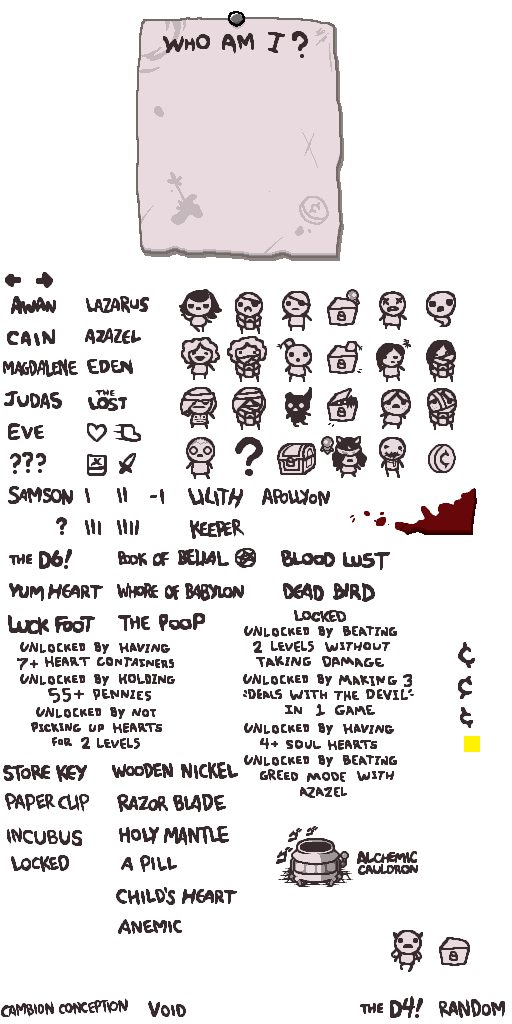 WHO AM I?
AWAN LAZARUS
CAIN AZAZEL
MAGDALENE EDEN
JUDAS THE LOST
EVE
???
?
SAMSON I II -1 LILITH APOLLYON
? III IIII KEEPER
THE D6! BOOK OF BELIAL BLOOD LUST
YUM HEART WHORE OF BABYLON DEAD BIRD
LUCK FOOT THE POOP
LOCKED
UNLOCKED BY BEATING
2 LEVELS WITHOUT
TAKING DAMAGE
UNLOCKED BY HAVING
7+ HEART CONTAINERS
UNLOCKED BY HOLDING
55+ PENNIES
UNLOCKED BY NOT
PICKING UP HEARTS
FOR 2 LEVELS
UNLOCKED BY MAKING 3
"DEALS WITH THE DEVIL"
IN 1 GAME
UNLOCKED BY HAVING
4+ SOUL HEARTS
UNLOCKED BY BEATING
GREED MODE WITH
AZAZEL
¢
¢
¢
STORE KEY WOODEN NICKEL
PAPER CLIP RAZOR BLADE
INCUBUS HOLY MANTLE
LOCKED A PILL
CHILD'S HEART
ANEMIC
ALCHEMIC
CAULDRON
CAMBION CONCEPTION VOID THE D4! RANDOM